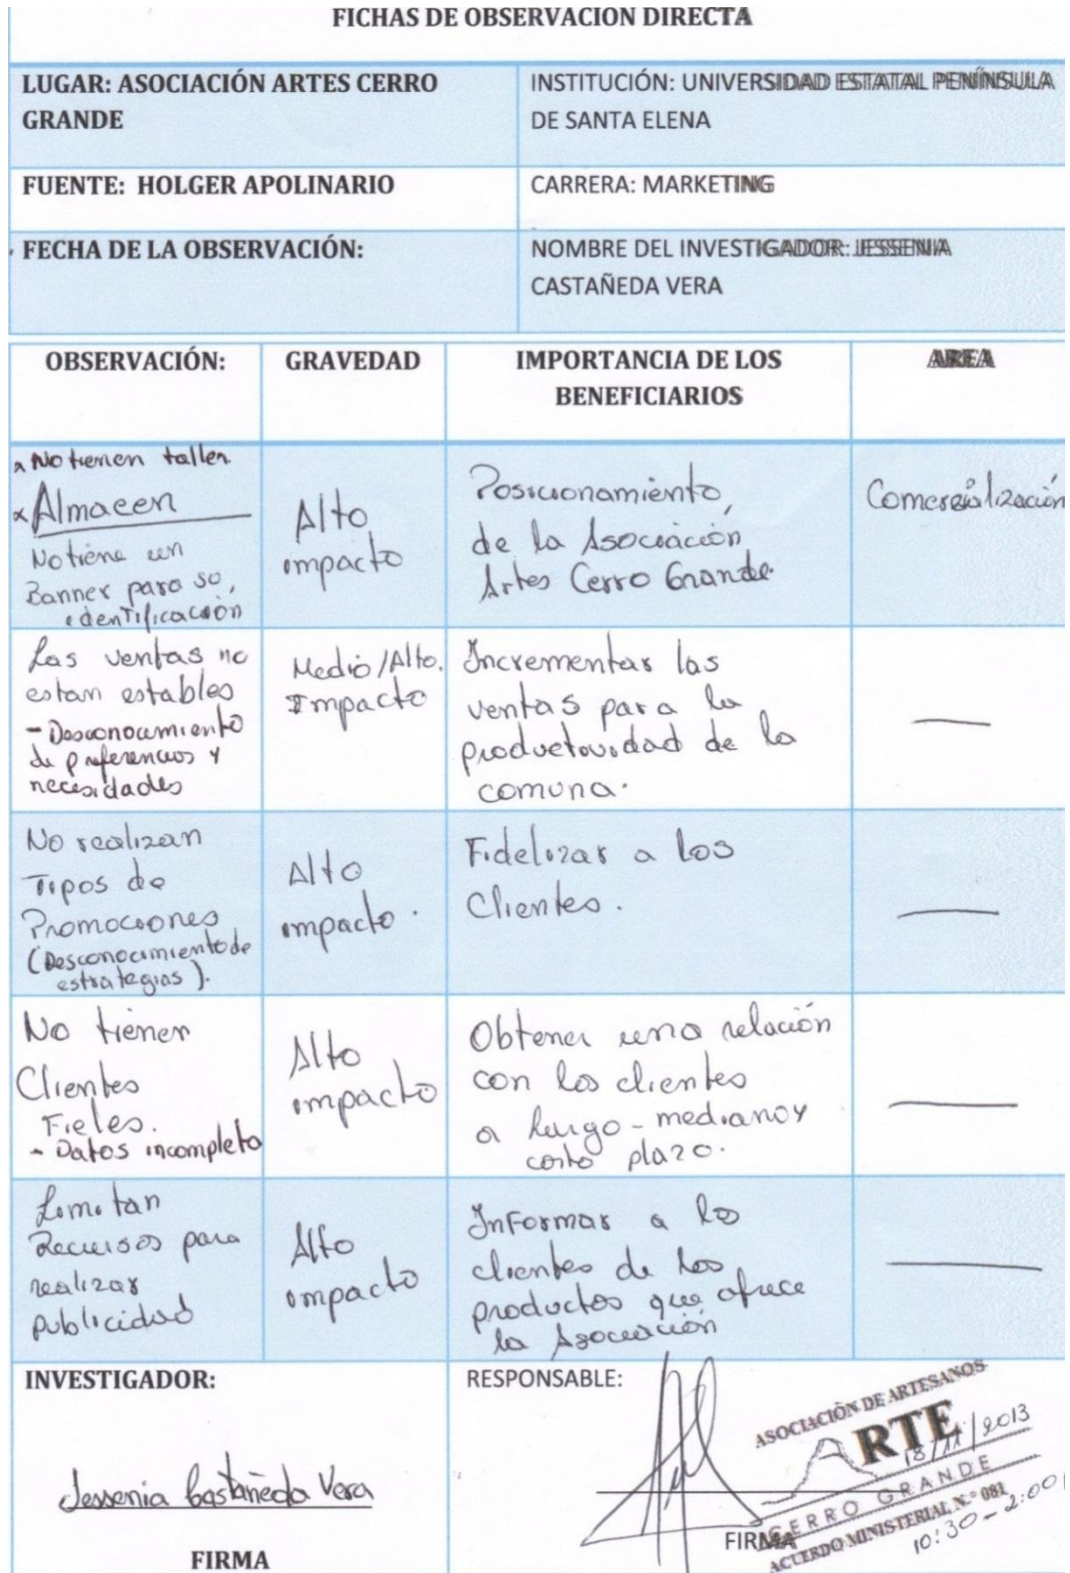 FICHAS DE OBSERVACION DIRECTA
LUGAR: ASOCIACIÓN ARTES CERRO
GRANDE
INSTITUCIÓN: UNIVERSIDAD ESTATAL PENÍNSULA
DE SANTA ELENA
FUENTE: HOLGER APOLINARIO
CARRERA: MARKETING
FECHA DE LA OBSERVACIÓN:
NOMBRE DEL INVESTIGADOR: JESSENIA
CASTAÑEDA VERA
OBSERVACIÓN:
GRAVEDAD
IMPORTANCIA DE LOS
BENEFICIARIOS
AREA
No tienen taller
Almacen
No tiene un
Banner para su
identificación
Alto
impacto
Posicionamiento
de la Asociación
Artes Cerro Grande.
Comercialización
Las ventas no
estan estables
- Desconocimiento
de preferencias y
necesidades
Medio/Alto.
Impacto
Incrementar las
ventas para la
productividad de la
comuna.
No realizan
Tipos de
Promociones
(Desconocimiento de
estrategias).
Alto
impacto.
Fidelizar a los
Clientes.
No tienen
Clientes
Fieles.
- Datos incompleto
Alto
impacto
Obtener una relación
con los clientes
a largo - mediano y
corto plazo.
Limitan
Recursos para
realizar
publicidad
Alto
impacto
Informar a los
clientes de los
productos que ofrece
la Asociación
INVESTIGADOR:
Jessenia Castañeda Vera
FIRMA
RESPONSABLE:
FIRMA
ASOCIACIÓN DE ARTESANOS
ARTE
18/11/2013
CERRO GRANDE
ACUERDO MINISTERIAL N.º 081
10:30 - 2:00